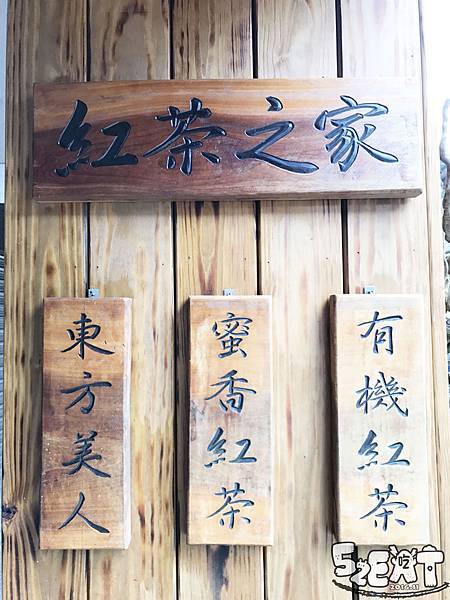 紅茶之家
有機紅茶
蜜香紅茶
東方美人
2016.11